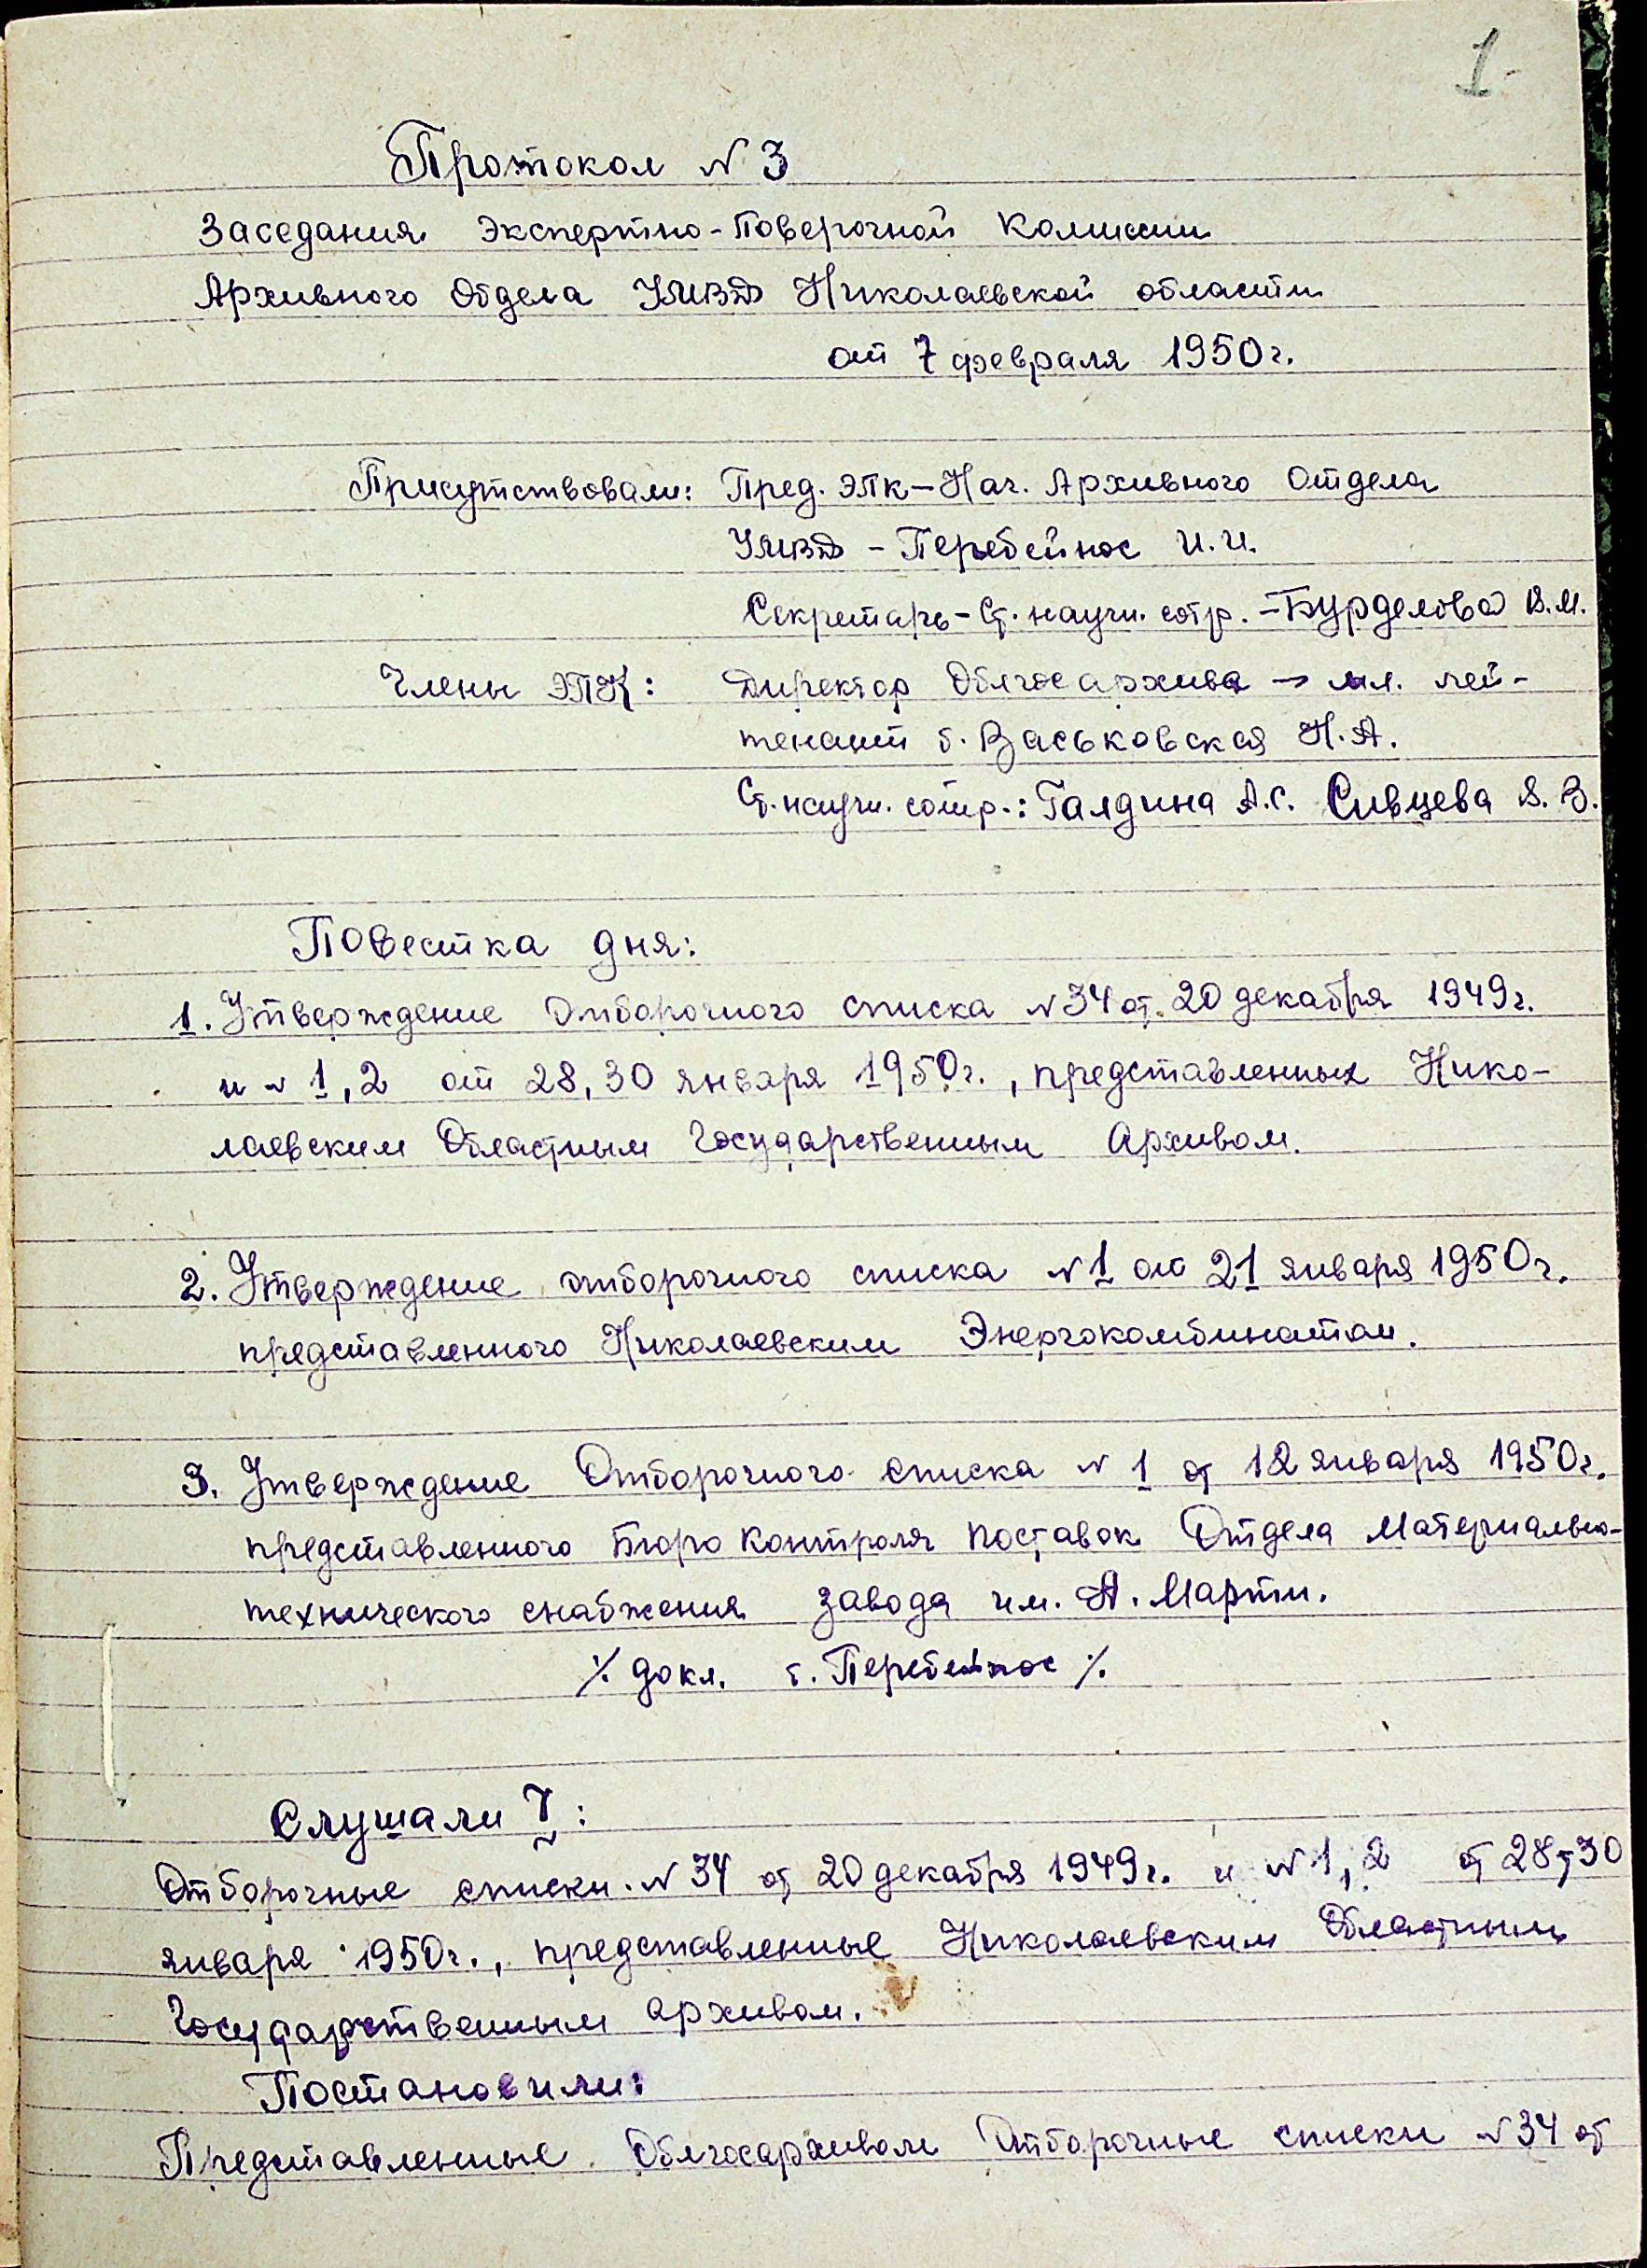 1
Протокол № 3
Заседания Экспертно-Поверочной Комиссии
Архивного Отдела УМВД Николаевской области
от 7 февраля 1950г.
Присутствовали: Пред. ЭПК – Нач. Архивного Отдела
УМВД – Перебейнос И.И.
Секретарь – Ст. научн. сотр. – Бурделова В.М.
Члены ЭПК: Директор Облгосархива – мл. лей-
тенант т. Васьковская Н.А.
Ст. научн. сотр.: Галдина А.С. Сивцева В.В.
Повестка дня:
1. Утверждение Отборочного списка № 34 от 20 декабря 1949г.
и № 1, 2 от 28, 30 января 1950г., представленных Нико-
лаевским Областным Государственным Архивом.
2. Утверждение отборочного списка № 1 от 21 января 1950г.
представленного Николаевским Энергокомбинатом.
3. Утверждение Отборочного списка № 1 от 12 января 1950г.
представленного Бюро Контроля поставок Отдела Материально-
технического снабжения завода им. А. Марти.
/. докл. т. Перебейнос /.
Слушали I:
Отборочные списки № 34 от 20 декабря 1949г. и № 1, 2 от 28, 30
января 1950г., представленные Николаевским Областным
Государственным архивом.
Постановили:
Представленные Облгосархивом Отборочные списки № 34 от